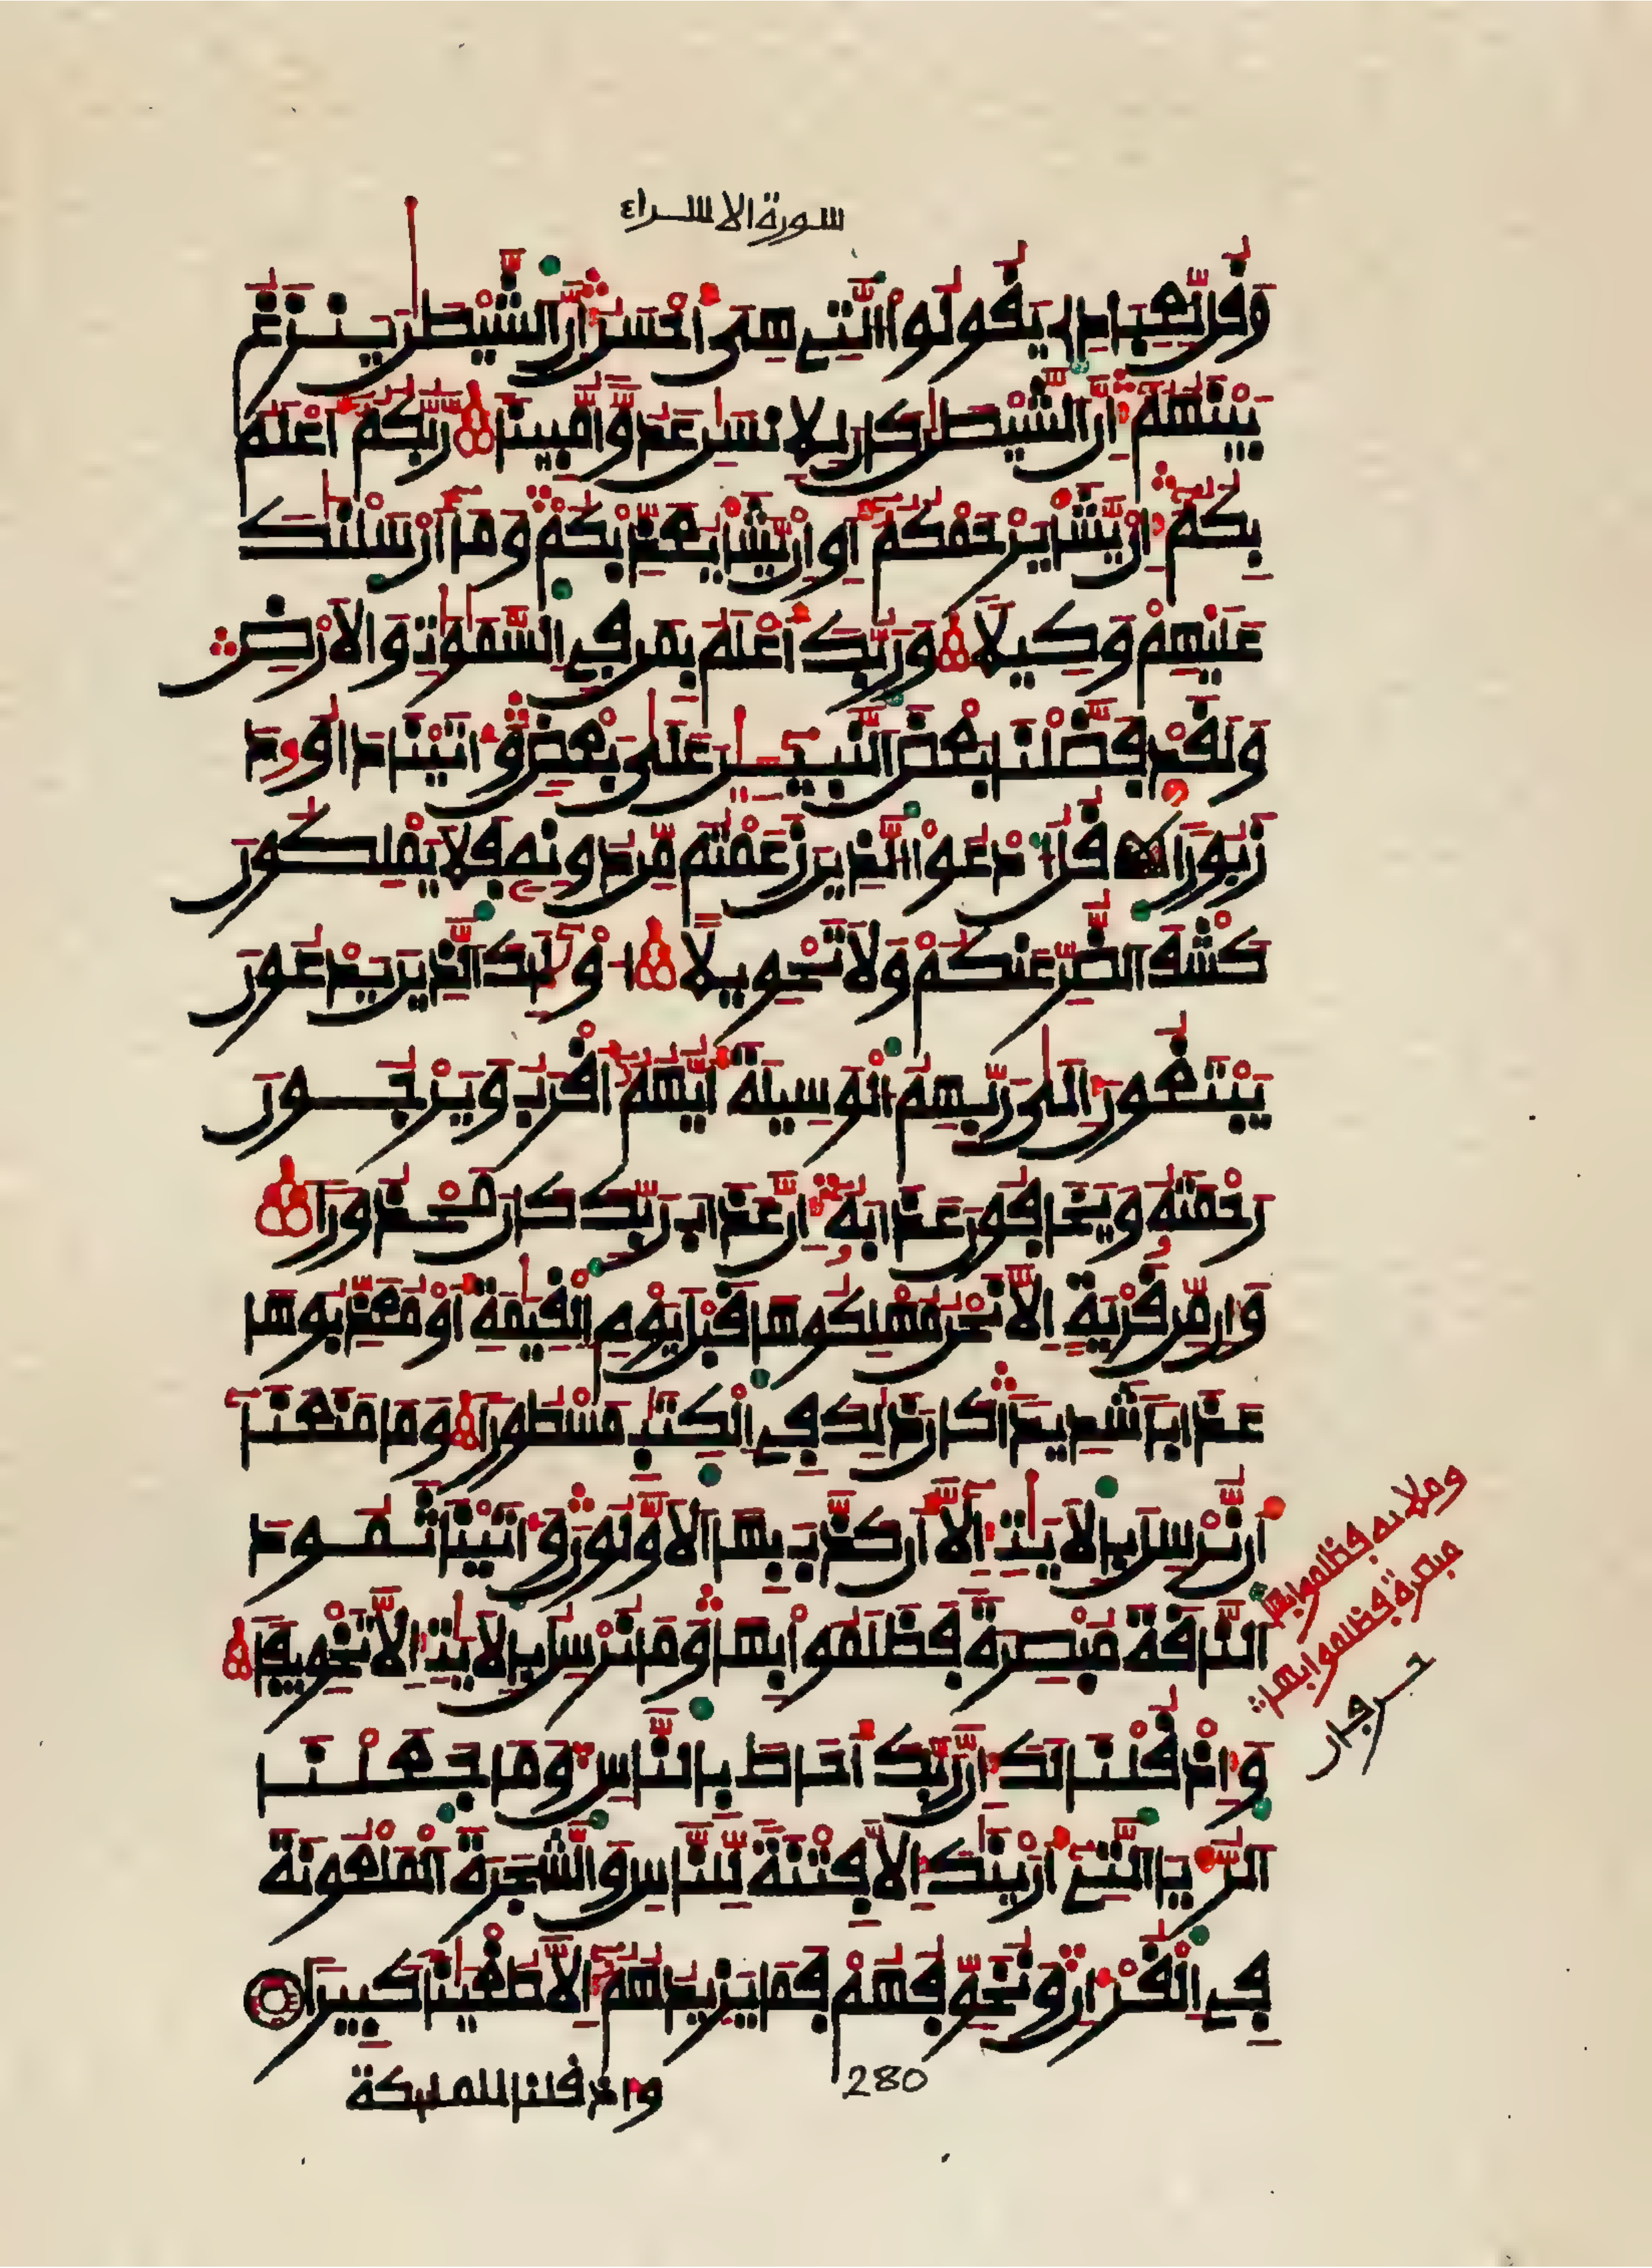 سورة الاسراء
وَقُل لِّعِبَادِے يَقُولُواْ اُلتِے هِيَ أَحْسَنُ إِنَّ اَلشَّيْطَٰنَ يَنزَغُ
بَيْنَهُمُۥ إِنَّ اَلشَّيْطَٰنَ كَانَ لِلِانسَٰنِ عَدُوّاٗ مُّبِيناٗ رَّبُّكُمُۥ أَعْلَمُ
بِكُمُۥ إِنْ يَّشَأْ يَرْحَمْكُمُۥ أَوِ اِنْ يَّشَأْ يُعَذِّبْكُمْ وَمَا أَرْسَلْنَٰكَ
عَلَيْهِمْ وَكِيلاٗ وَرَبُّكَ أَعْلَمُ بِمَن فِے اِلسَّمَٰوَٰتِ وَالَارْضِ
وَلَقَدْ فَضَّلْنَا بَعْضَ اَلنَّبِيـِٕۧنَ عَلَىٰ بَعْضٖ وَءَاتَيْنَا دَاوُۥدَ
زَبُوراٗ قُلُ اُ دْعُواْ اُلذِينَ زَعَمْتُم مِّن دُونِهِۦ فَلَا يَمْلِكُونَ
كَشْفَ اَلضُّرِّ عَنكُمْ وَلَا تَحْوِيلاً ا۟وْلَٰٓئِكَ اَلذِينَ يَدْعُونَ
يَبْتَغُونَ إِلَىٰ رَبِّهِمُ اُلْوَسِيلَةَ أَيُّهُمُۥ أَقْرَبُ وَيَرْجُونَ
رَحْمَتَهُۥ وَيَخَافُونَ عَذَابَهُۥ إِنَّ عَذَابَ رَبِّكَ كَانَ مَحْذُوراٗ
وَإِن مِّن قَرْيَةٍ اِلَّا نَحْنُ مُهْلِكُوهَا قَبْلَ يَوْمِ اِلْقِيَٰمَةِ أَوْ مُعَذِّبُوهَا
عَذَاباٗ شَدِيداٗ كَانَ ذَٰلِكَ فِے اِلْكِتَٰبِ مَسْطُوراٗ وَمَا مَنَعَنَا
أَن نُّرْسِلَ بِالَايَٰتِ إِلَّا أَن كَذَّبَ بِهَا اَلَاوَّلُونَ وَءَاتَيْنَا ثَمُودَ
اَلنَّاقَةَ مُبْصِرَةٗ فَظَلَمُواْ بِهَا وَمَا نُرْسِلُ بِالَايَٰتِ إِلَّا تَخْوِيفاٗ
وملائه فظلموا بها
مبصرة فظلموا بها
وَإِذْ قُلْنَا لَكَ إِنَّ رَبَّكَ أَحَاطَ بِالنَّاسِ وَمَا جَعَلْنَا
اَلرُّءْيَا اَلتِے أَرَيْنَٰكَ إِلَّا فِتْنَةٗ لِّلنَّاسِ وَالشَّجَرَةَ اَلْمَلْعُونَةَ
فِے اِلْقُرْءَانِ وَنُخَوِّفُهُمْ فَمَا يَزِيدُهُمُۥ إِلَّا طُغْيَٰناٗ كَبِيراٗ
واذ قلنا للملئكة
280